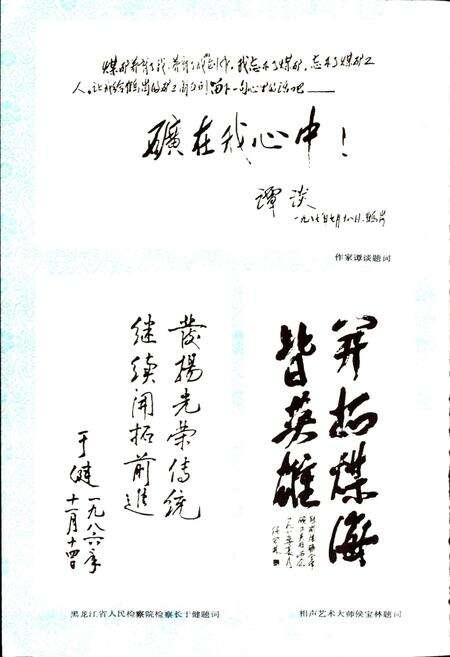 煤矿养育了我，养育了我创作，我忘不了煤矿，忘不了煤矿工
人。让我给鹤岗的矿工朋友们留下一句心里的话吧——
礦在我心中！
谭谈
一九八七年七月十八日，鹤岗
作家谭谈题词
發揚光荣传统
继续开拓前進
于健
一九八六年
十一月十四日
黑龙江省人民检察院检察长于健题词
开拓煤海
皆英雄
相声艺术大师侯宝林题词